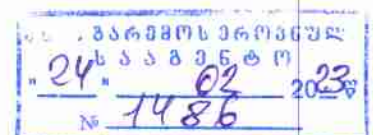 გარემოს ეროვნულ
სააგენტო
" 24 " 02 2023 წ
№ 1486